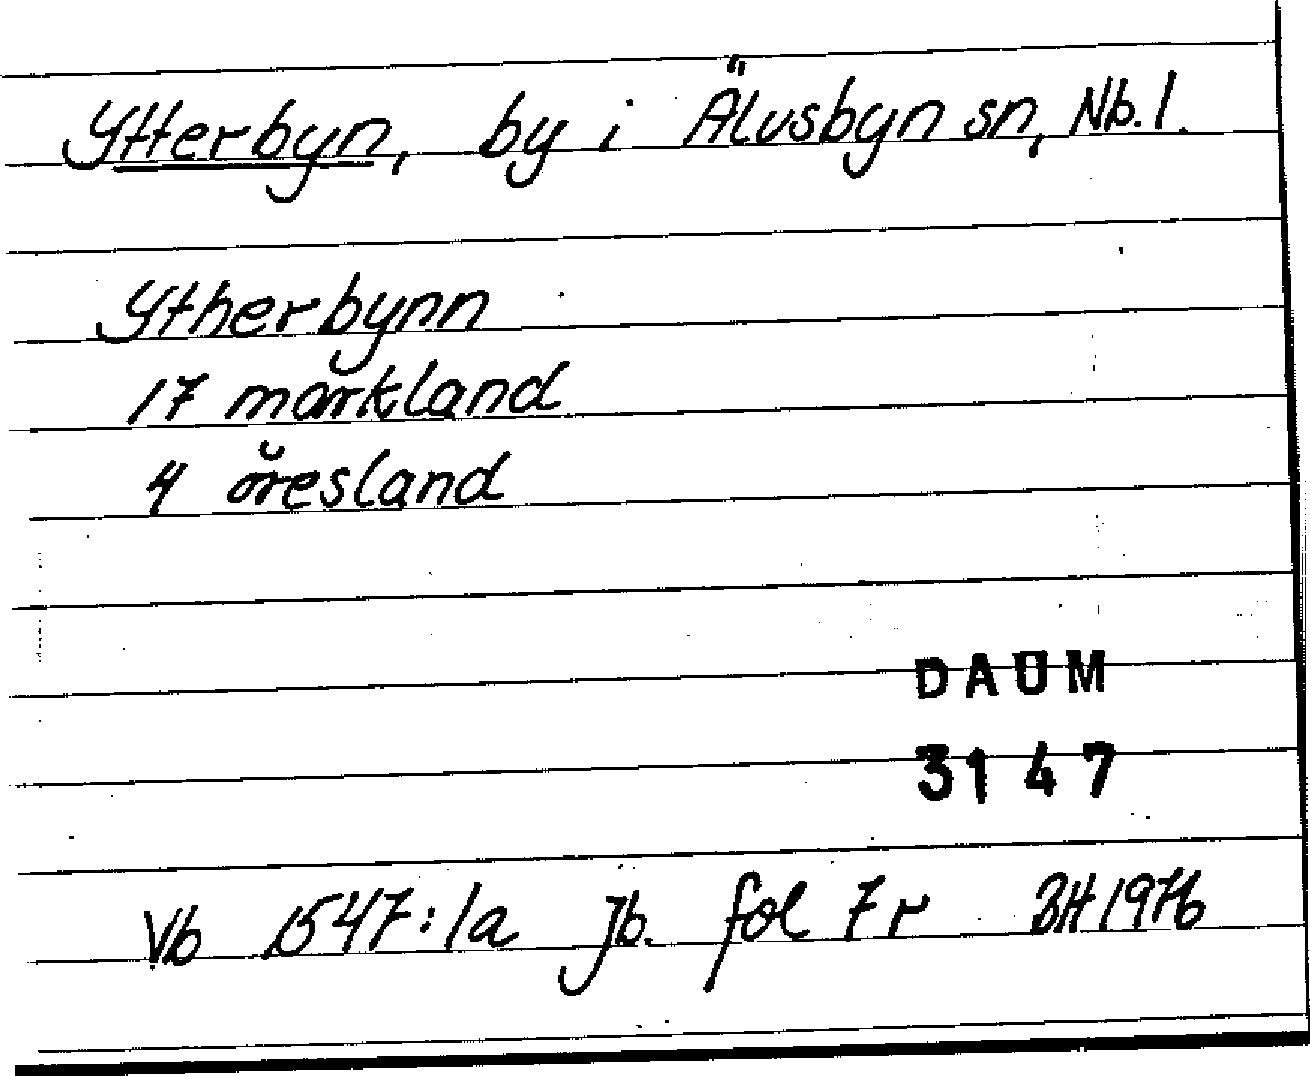 Ytterbyn, by i Älvsbyn sn, Nb. l.
Ytherbynn
17 markland
4 öresland
DAUM
3147
Vb 1547:1a Jb. fol 7r BH 1976